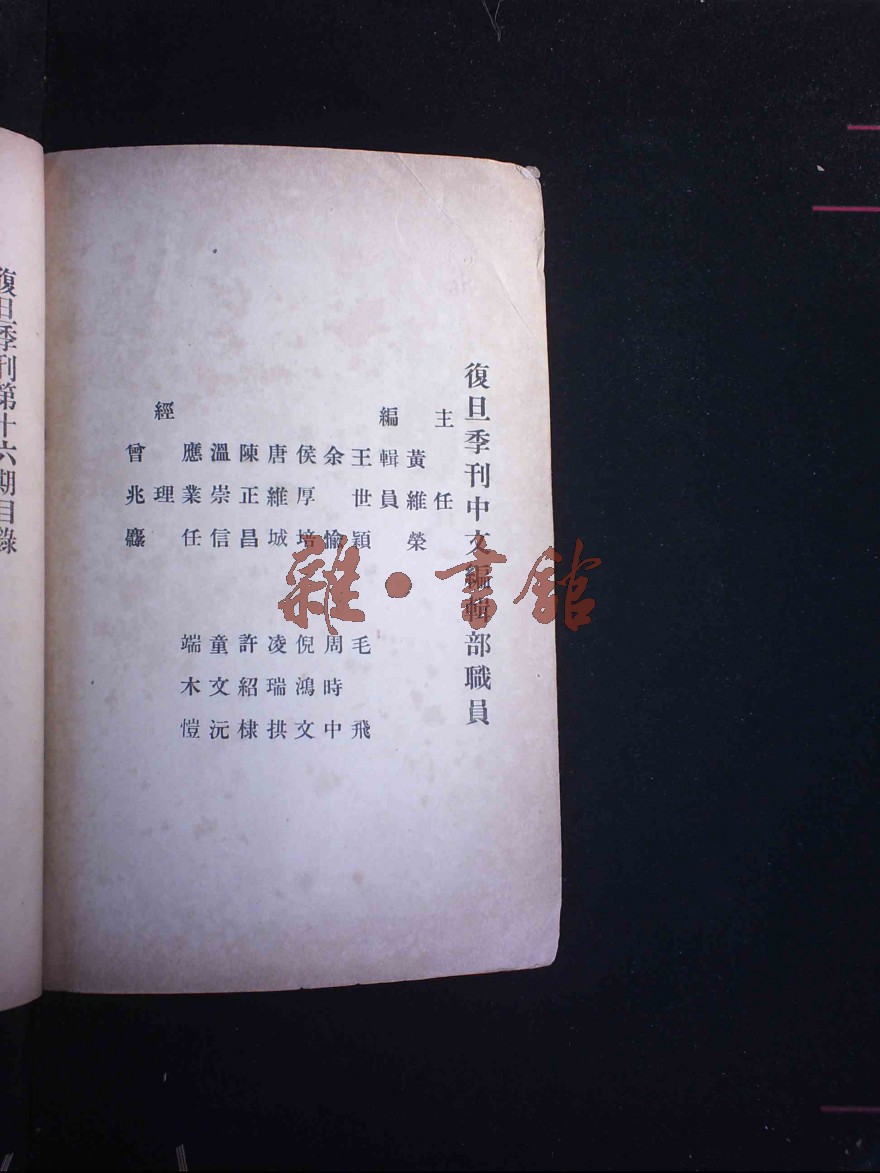 復旦季刊中文編輯部職員
主任
黃維榮
編輯員
王世穎 毛飛
余愉 周時中
侯厚培 倪鴻文
唐維城 凌瑞拱
陳正昌 許紹棣
溫崇信 童文沅
應業任 端木愷
經理
曾兆
復旦季刊第十六期目錄
雜·書館